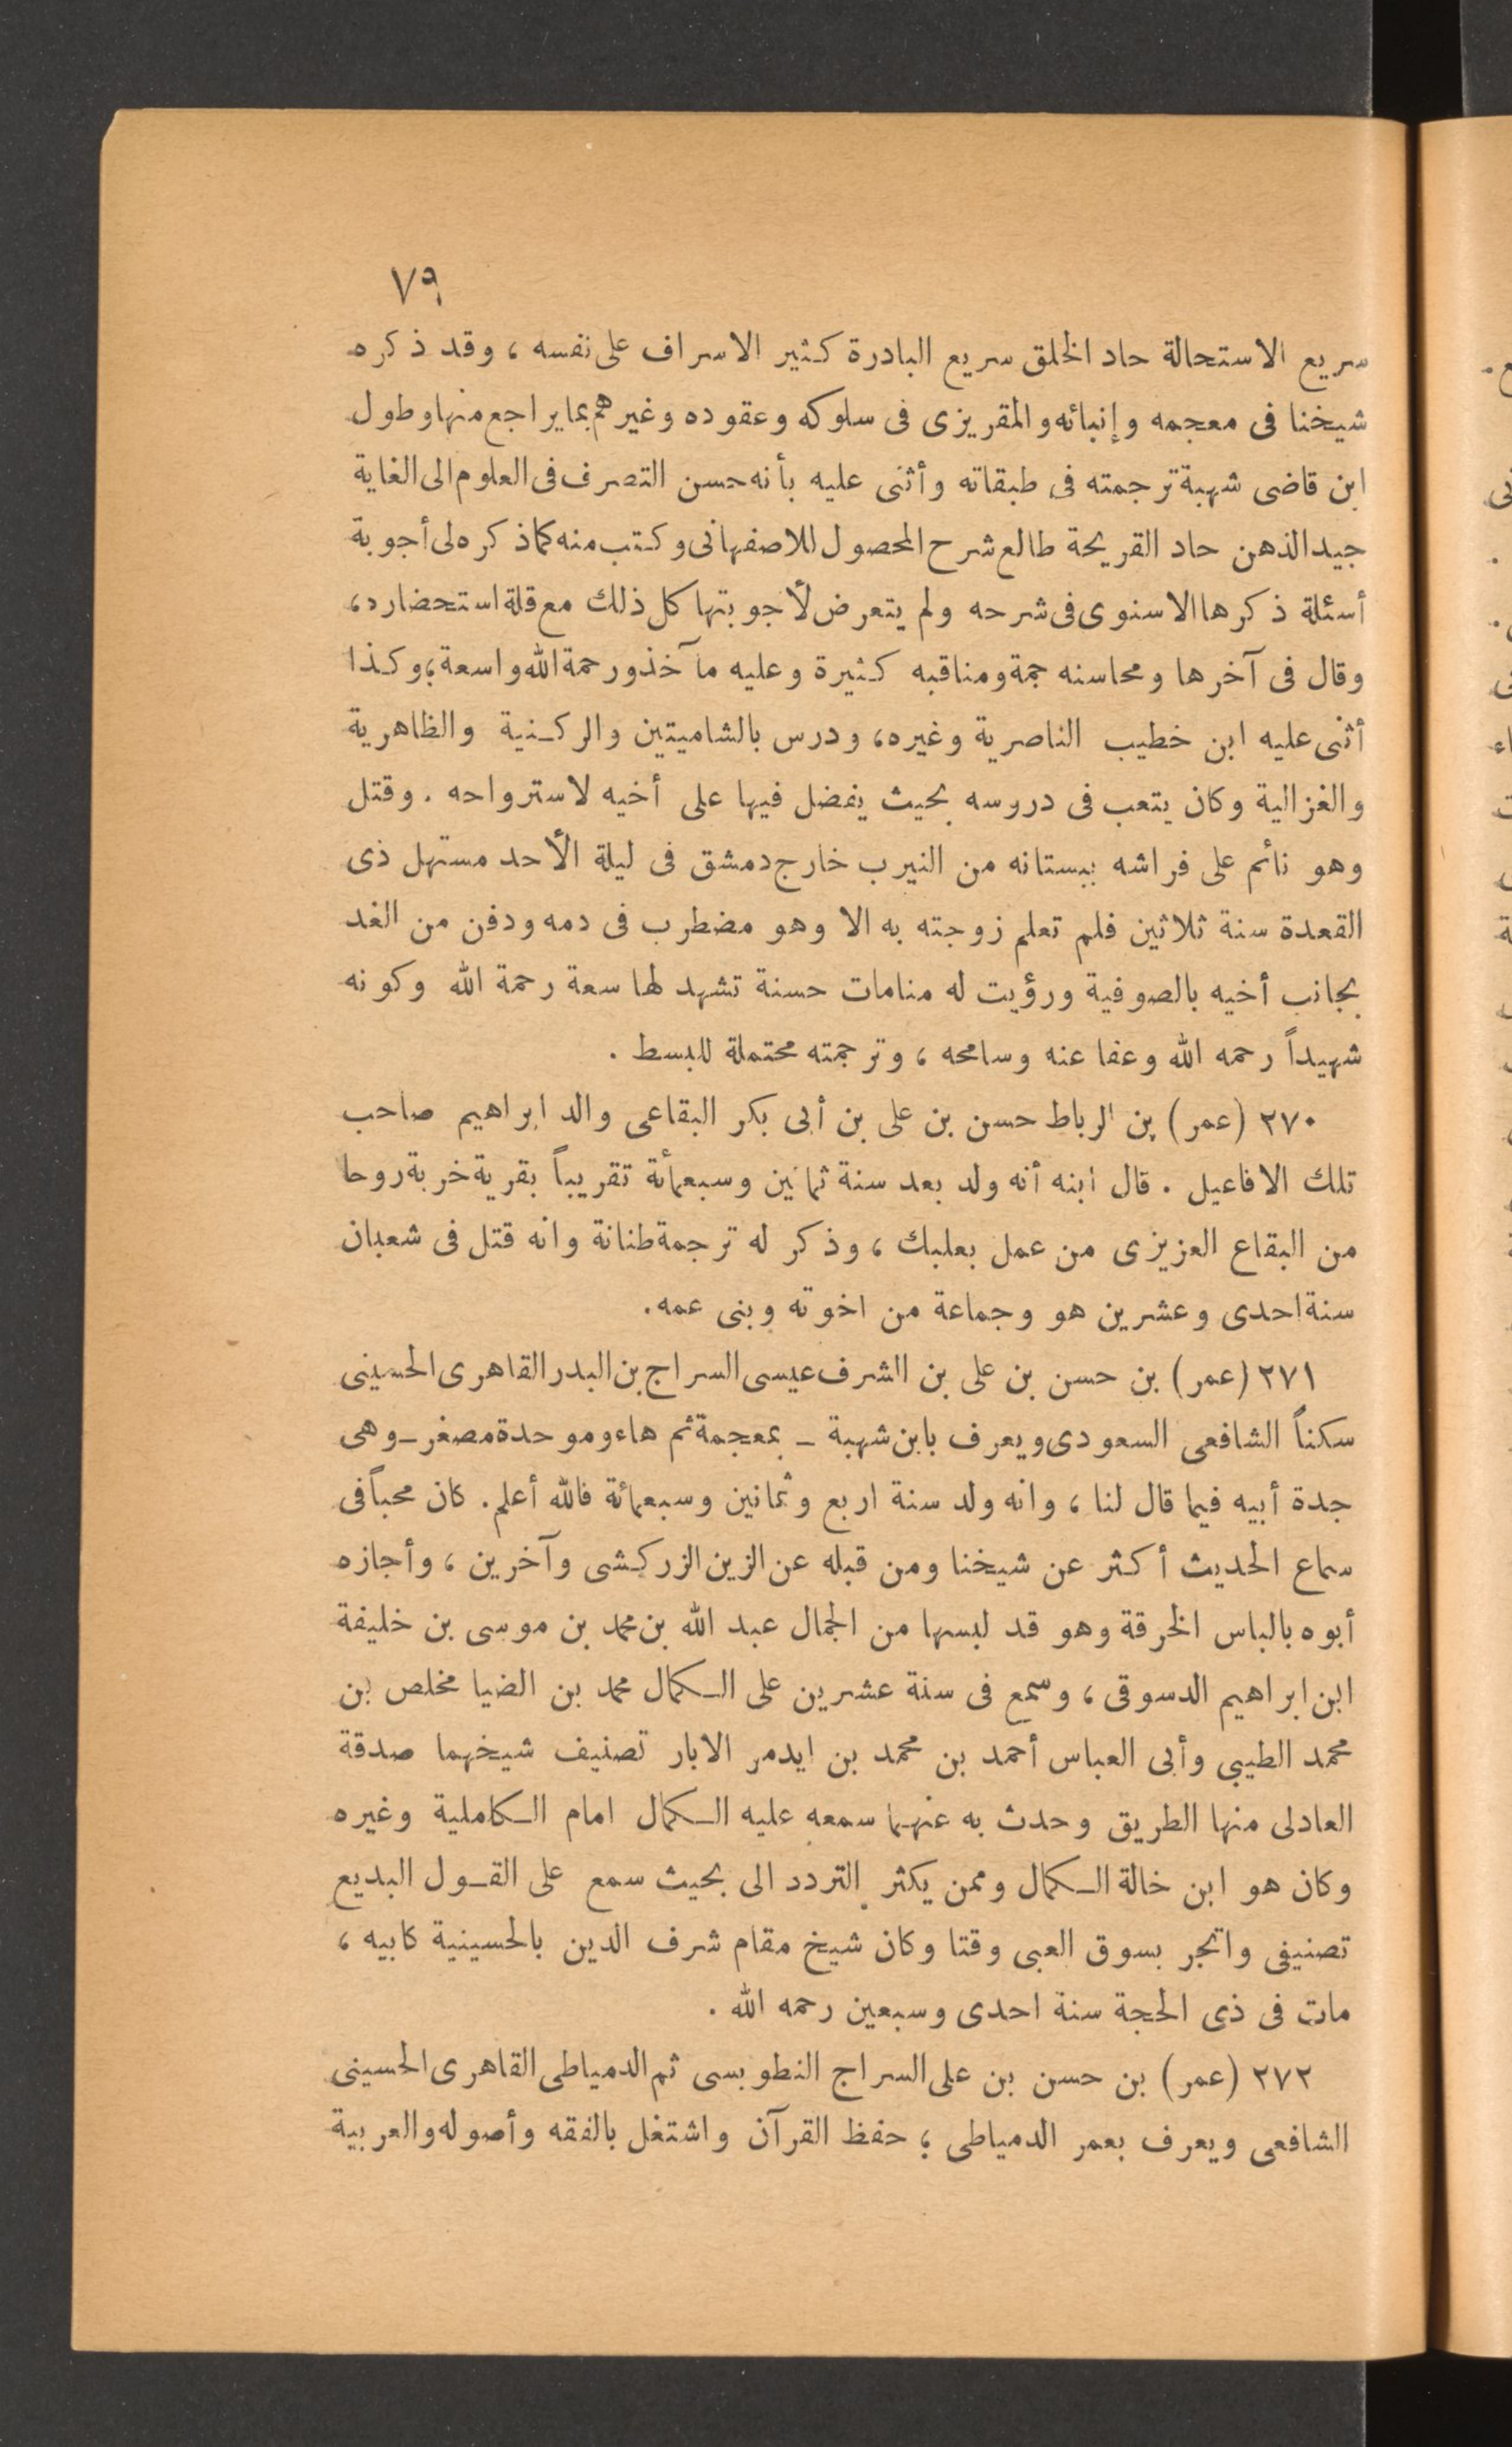 ٧٩
سريع الاستحالة حاد الخلق سريع البادرة كثير الاسراف على نفسه ، وقد ذكره
شيخنا فى معجمه وإنبائه والمقريزى فى سلوكه وعقوده وغيرهم بما يراجع منها وطول
ابن قاضى شهبة ترجمته فى طبقاته وأثنى عليه بأنه حسن التصرف فى العلوم الى الغاية
جيد الذهن حاد القريحة طالع شرح المحصول للاصفهانى وكتب منه كما ذكره لى أجوبة
أسئلة ذكرها الاسنوى فى شرحه ولم يتعرض لأجوبتها كل ذلك مع قلة استحضاره ،
وقال فى آخرها ومحاسنه جمة ومناقبه كثيرة وعليه مآخذ ورحمة الله واسعة ؛ وكذا
أثنى عليه ابن خطيب الناصرية وغيره ، ودرس بالشاميتين والركنية والظاهرية
والغزالية وكان يتعب فى دروسه بحيث يفضل فيها على أخيه لاسترواحه . وقتل
وهو نائم على فراشه ببستانه من النيرب خارج دمشق فى ليلة الأحد مستهل ذى
القعدة سنة ثلاثين فلم تعلم زوجته به الا وهو مضطرب فى دمه ودفن من الغد
بجانب أخيه بالصوفية ورؤيت له منامات حسنة تشهد لها سعة رحمة الله وكونه
شهيداً رحمه الله وعفا عنه وسامحه ، وترجمته محتملة للبسط .
٢٧٠ (عمر) بن الرباط حسن بن على بن أبى بكر البقاعى والد ابراهيم صاحب
تلك الافاعيل . قال ابنه أنه ولد بعد سنة ثمانين وسبعمأة تقريباً بقرية خربة روحا
من البقاع العزيزى من عمل بعلبك ، وذكر له ترجمة طنانة وانه قتل فى شعبان
سنة احدى وعشرين هو وجماعة من اخوته وبنى عمه .
٢٧١ (عمر) بن حسن بن على بن الشرف عيسى السراج بن البدر القاهرى الحسينى
سكناً الشافعى السعودى ويعرف بابن شهبة ـ بمعجمة ثم هاء وموحدة مصغر ـ وهى
جدة أبيه فيما قال لنا ، وانه ولد سنة اربع وثمانين وسبعمائة فالله أعلم . كان محباً فى
سماع الحديث أكثر عن شيخنا ومن قبله عن الزين الزركشى وآخرين ، وأجازه
أبوه بالباس الخرقة وهو قد لبسها من الجمال عبد الله بن محمد بن موسى بن خليفة
ابن ابراهيم الدسوقى ، وسمع فى سنة عشرين على الكمال محمد بن الضيا مخلص بن
محمد الطيبى وأبى العباس أحمد بن محمد بن ايدمر الابار تصنيف شيخهما صدقة
العادلى منها الطريق وحدث به عنهما سمعه عليه الكمال امام الكاملية وغيره
وكان هو ابن خالة الكمال وممن يكثر التردد الى بحيث سمع على القول البديع
تصنيفى واتجر بسوق العبى وقتا وكان شيخ مقام شرف الدين بالحسينية كابيه ،
مات فى ذى الحجة سنة احدى وسبعين رحمه الله .
٢٧٢ (عمر) بن حسن بن على السراج النطوبسى ثم الدمياطى القاهرى الحسينى
الشافعى ويعرف بعمر الدمياطى ؛ حفظ القرآن واشتغل بالفقه وأصوله والعربية